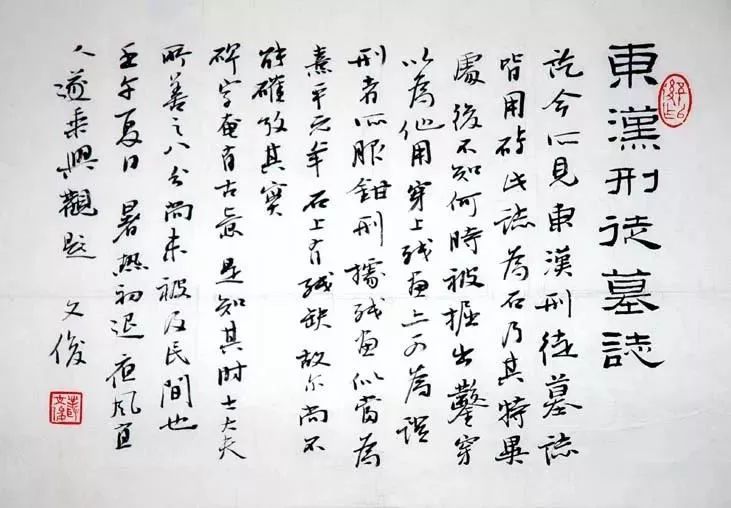 東漢刑徒墓誌
訖今所見東漢刑徒墓誌
皆用磚此誌為石乃其特異
處後不知何時被掘出鑿穿
以為他用穿上残画為
刑者所服鉗刑據残画似當為
熹平元年 石上有残缺故尔尚不
能確攷其實
碑字奄有古意 是知其时士大夫
所善之八分尚未被及民間也
壬午夏日 暑热初退夜风宜
人遂乘興觀題 文俊